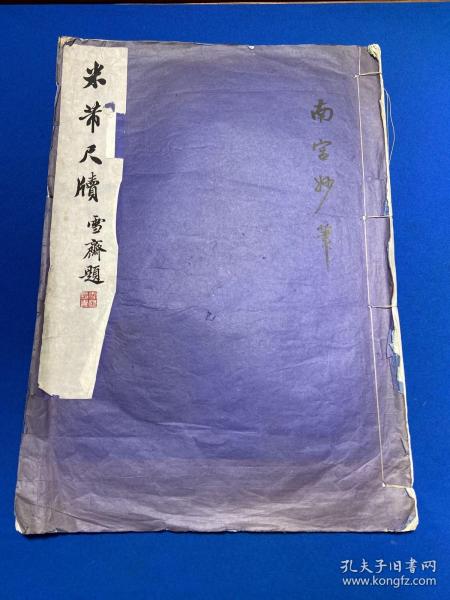 南宮妙筆
米芾尺牘
雪齋題
孔夫子旧书网
www.kongfz.com